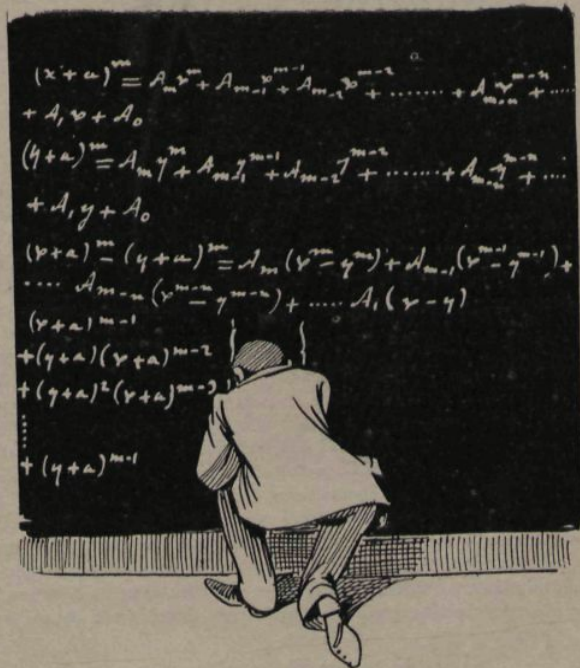 (x + a)^m = A_m x^m + A_{m-1} x^{m-1} + A_{m-2} x^{m-2} + ....... + A_{m-n} x^{m-n} + ....
+ A_1 x + A_0
(y + a)^m = A_m y^m + A_{m-1} y^{m-1} + A_{m-2} y^{m-2} + ....... + A_{m-n} y^{m-n} + ....
+ A_1 y + A_0
(x + a)^m - (y + a)^m = A_m (x^m - y^m) + A_{m-1} (x^{m-1} - y^{m-1}) +
.... A_{m-n} (x^{m-n} - y^{m-n}) + ..... A_1 (x - y)
(x + a)^{m-1}
+ (y + a) (x + a)^{m-2}
+ (y + a)^2 (x + a)^{m-3}
.....
+ (y + a)^{m-1}